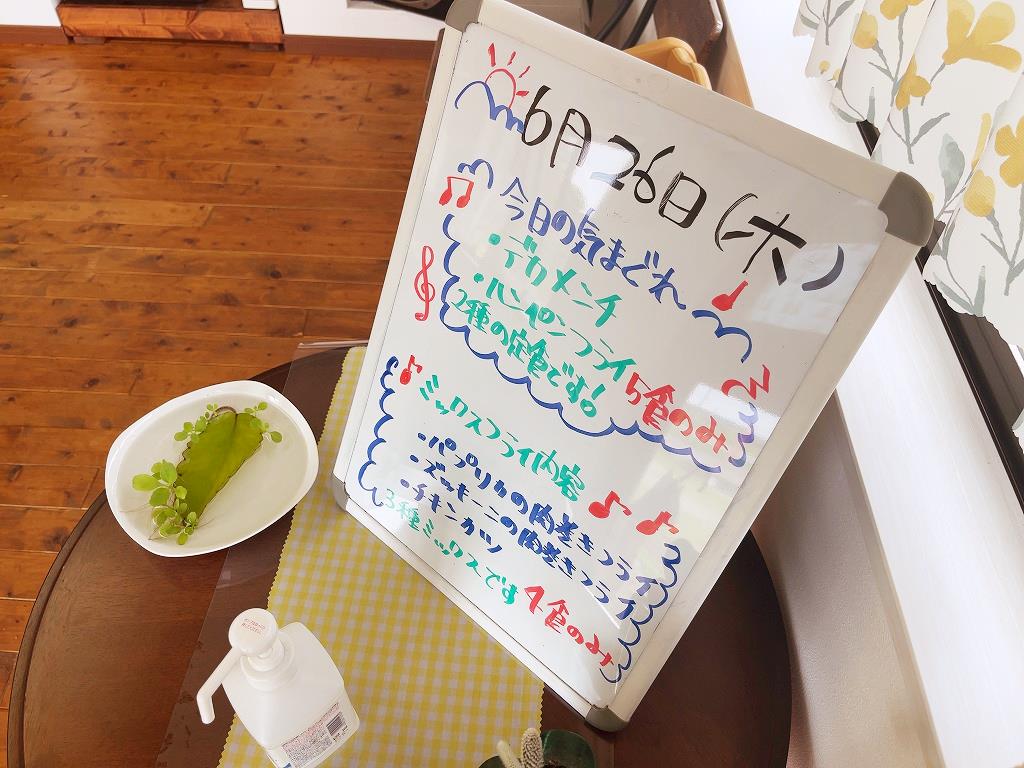 6月26日(木)
今日の気まぐれ
・デカメンチ
・ハンペンフライ
2種の定食です! 5食のみ
ミックスフライ内容
・パプリカの肉巻きフライ
・ズッキーニの肉巻きフライ
・チキンカツ
3種ミックスです 4食のみ